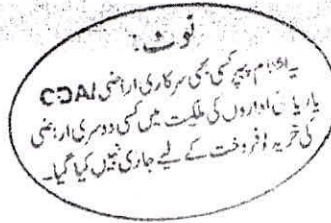 نوٹ:
یہ اسٹام پیپر کسی بھی سرکاری اراضی CDA/
یا ریاستی اداروں کی ملکیت میں کسی دوسری اراضی
کی خرید و فروخت کے لیے جاری نہیں کیا گیا۔